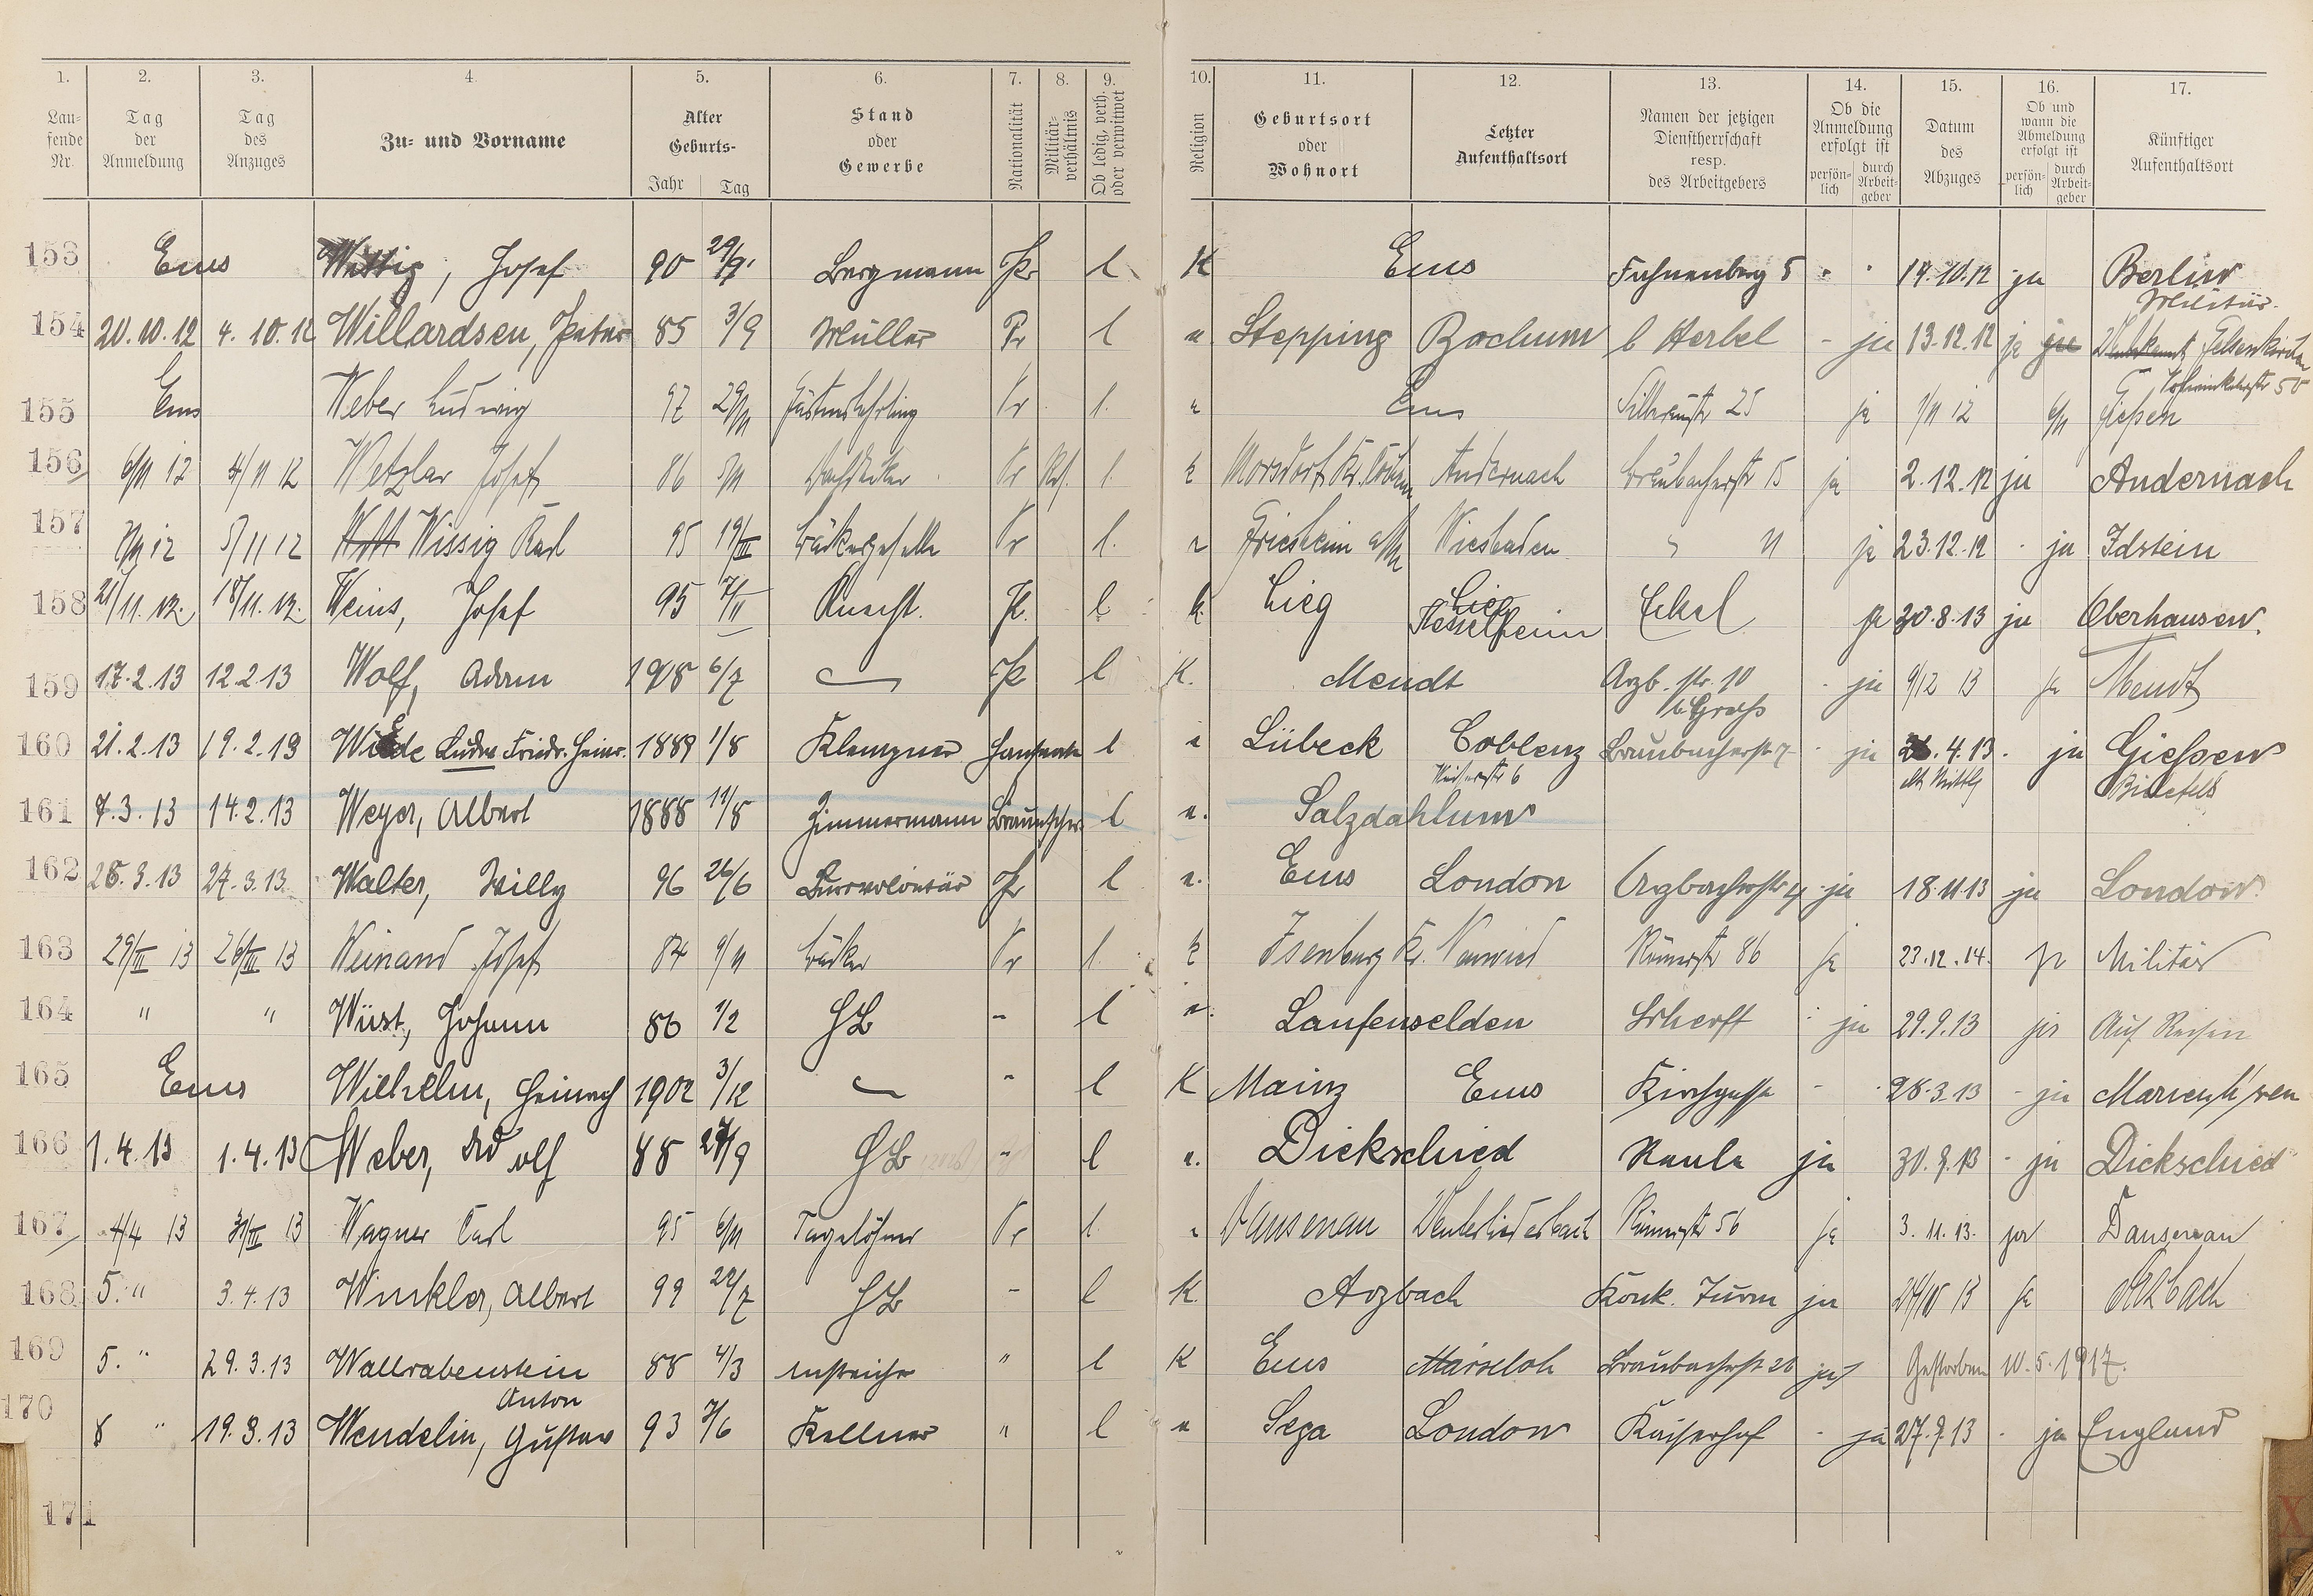 1. 2. 3. 4. 5. 6. 7. 8. 9. 10. 11. 12. 13. 14. 15. 16. 17.
Lau-fende Nr. Tag der Anmeldung Tag des Anzuges Zu- und Vorname Alter Geburts- Jahr Tag Stand oder Gewerbe Nationalität Militär-verhältnis Ob ledig, verh. oder verwitwet Religion Geburtsort oder Wohnort Letzter Aufenthaltsort Namen der jetzigen Dienstherrschaft resp. des Arbeitgebers Ob die Anmeldung erfolgt ist persön-lich durch Arbeit-geber Datum des Abzuges Ob und wann die Abmeldung erfolgt ist persön-lich durch Arbeit-geber Künftiger Aufenthaltsort
153 Ems Wittig, Josef 90 29/9 Bergmann Pr l K Ems Fahnenberg 5 14.10.12 ja Berlin Militär
154 20.10.12 4.10.12 Willardsen, Peter 85 3/9 Müller Pr l Stepping Bochum b Herbel - ja 13.12.12 ja ja Gelsenkirchen
155 Ems Weber Ludwig 97 29/11 Pr l. Ems Silberaustr 25 ja 1/11 12 6/11 Gießen
156 6/11 12 4/11 12 Wetzlar Josef 86 5/11 Dachdecker Pr Rs. l. k Morsdorf Kr. Andernach Braubacherstr 15 ja 2.12.12 ja Andernach
157 5/11 12 Wissig Karl 95 19/III Bäckergeselle Pr l. Griesheim a/M Wiesbaden " 11 ja 23.12.12 - ja Idstein
158 21/11.12. 18/11.12. Weins, Josef 95 7/II Knecht. Pr. l k. Lieg Lieg Kesselheim Eckel ja 30.8.13 ja Oberhausen.
159 17.2.13 12.2.13 Wolf, Adam 1908 6/7 Pr l K. Mendt Arzb. str. 10 - ja 9/12 13 ja Mendt
160 21.2.13 19.2.13 Wilde Ludw Friedr. Heinr. 1889 1/8 Klempner Hanseate l Lübeck Coblenz Braubacherstr 7 - ja .4.13. ja Giessen
161 7.3.13 14.2.13 Weyer, Albert 1888 11/8 Zimmermann Braunschw. l Salzdahlum Bielefeld
162 28.3.13 27.3.13 Walter, Willy 96 26/6 Bürovolontär Pr l Ems London Arzbacherstr ja 18.11.13 ja London
163 29/III 13 26/III 13 Weinand Josef 84 9/11 Bäcker Pr l. k Isenburg Kr. Neuwied Römerstr 86 ja 23.12.14. ja Militär
164 " " Wüst, Johann 86 1/2 HB - l Laufenselden Scherff - ja 29.9.13 ja Auf Reisen
165 Ems Wilhelm, Heinrich 1902 3/12 - l K Mainz Ems Kirchgasse - 28.3.13 - ja
166 1.4.13 1.4.13 Weber, Adolf 88 27/9 HB - l Dickschied Kaula ja 30.9.13 - ja Dickschied
167 4/4 13 31/III 13 Wagner Carl 95 6/11 Tagelöhner Pr l. Dausenau Römerstr 56 ja 3.11.13. ja Dausenau
168 5. " 3.4.13 Winkler, Albert 99 22/7 HB - l K. Arzbach Konk. Turm ja 13 ja Arzbach
169 5. " 29.3.13 Wallrabenstein Anton 88 4/3 Anstreicher " l K Ems Marxloh Braubacherstr 26 ja Gestorben 10.5.1917.
170 8 " 19.3.13 Wendelin, Gustav 93 7/6 Kellner " l Sega London Kaiserhof - ja 27.9.13 - ja England
171